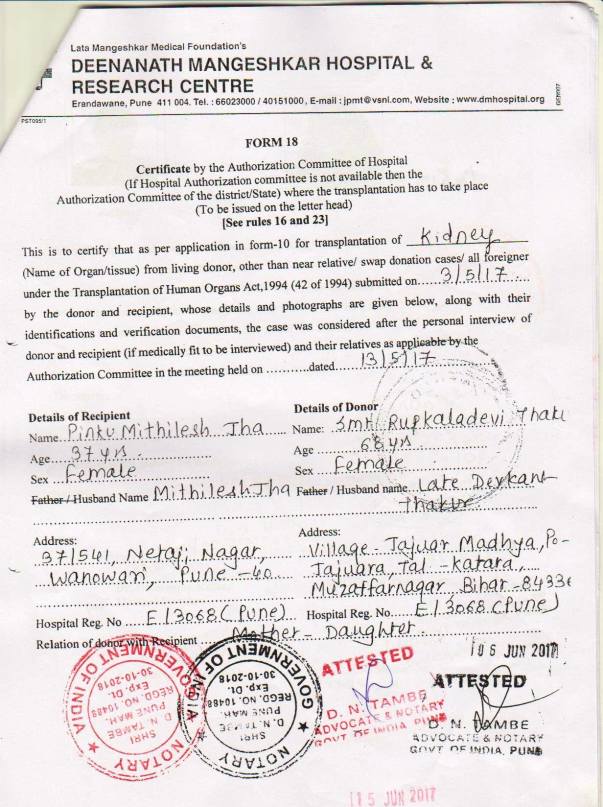 Lata Mangeshkar Medical Foundation's
DEENANATH MANGESHKAR HOSPITAL &
RESEARCH CENTRE
Erandawane, Pune 411 004. Tel. : 66023000 / 40151000, E-mail : jpmt@vsnl.com, Website : www.dmhospital.org
PST095/1
FORM 18
Certificate by the Authorization Committee of Hospital
(If Hospital Authorization committee is not available then the
Authorization Committee of the district/State) where the transplantation has to take place
(To be issued on the letter head)
[See rules 16 and 23]
This is to certify that as per application in form-10 for transplantation of Kidney
(Name of Organ/tissue) from living donor, other than near relative/ swap donation cases/ all foreigner
under the Transplantation of Human Organs Act,1994 (42 of 1994) submitted on 3/5/17
by the donor and recipient, whose details and photographs are given below, along with their
identifications and verification documents, the case was considered after the personal interview of
donor and recipient (if medically fit to be interviewed) and their relatives as applicable by the
Authorization Committee in the meeting held on ...........dated 13/5/17
Details of Recipient
Name Pinku Mithilesh Jha
Age 37 yrs
Sex Female
Father / Husband Name Mithilesh Jha
Details of Donor
Name: Smt. Rupkaladevi Thaku
Age 68 yrs
Sex Female
Father / Husband name Late Devkant
Thakur
Address:
37/541, Netaji Nagar,
Wanowari, Pune -40
Address:
Village - Jajuar Madhya, Po-
Jajuara, Tal - Katara,
Muzaffarnagar, Bihar - 84336
Hospital Reg. No E/3068 (Pune)
Hospital Reg. No. E/3068 (Pune)
Relation of donor with Recipient Mother - Daughter
NOTARY
GOVERNMENT OF INDIA
SHRI
D. N. TAMBE
PUNE MAH.
REGD. NO. 10488
Exp. Dt.
30-10-2018
NOTARY
GOVERNMENT OF INDIA
SHRI
D. N. TAMBE
PUNE MAH.
REGD. NO. 10488
Exp. Dt.
30-10-2018
ATTESTED
D. N. TAMBE
ADVOCATE & NOTARY
GOVT OF INDIA, PUNE
06 JUN 2017
ATTESTED
D. N. TAMBE
ADVOCATE & NOTARY
GOVT OF INDIA, PUNE
15 JUN 2017